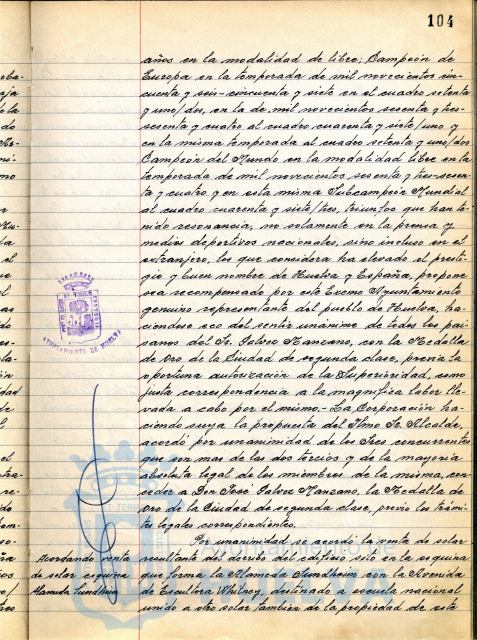 104
años en la modalidad de libre; Campeón de
Europa en la temporada de mil novecientos cin-
cuenta y seis-cincuenta y siete en el cuadro setenta
y uno/dos, en la de mil novecientos sesenta y tres-
sesenta y cuatro al cuadro cuarenta y siete/uno y
en la misma temporada al cuadro setenta y uno/dos
Campeón del Mundo en la modalidad libre en la
temporada de mil novecientos sesenta y tres-sesen-
ta y cuatro y en esta misma Subcampeón Mundial
al cuadro cuarenta y siete/tres, triunfos que han te-
nido resonancia, no solamente en la prensa y
medios deportivos nacionales, sino incluso en el
extranjero, los que considera ha elevado el presti-
gio y buen nombre de Huelva y España, propone
sea recompensado por este Excmo Ayuntamiento
genuino representante del pueblo de Huelva, ha-
ciéndose eco del sentir unánime de todos los pai-
sanos del Sr. Galvez Manzano, con la Medalla
de Oro de la Ciudad de segunda clase, previa la
oportuna autorización de la Superioridad, como
justa correspondencia a la magnífica labor lle-
vada a cabo por el mismo.- La Corporación ha-
ciendo suya la propuesta del Iltmo Sr. Alcalde,
acordó por unanimidad de los Sres concurrentes
que son mas de los dos tercios y de la mayoria
absoluta legal de los miembros de la misma, con-
ceder a Don José Galvez Manzano, la Medalla de
Oro de la Ciudad de segunda clase, previo los trámi-
tes legales correspondientes.
Por unanimidad se acordó la venta de solar
resultante del derribo del edificio sito en la esquina
que forma la Alameda Sundheim con la Avenida
de Escultora Whitney, destinado a escuela nacional
unido a otro solar tambien de la propiedad de este
Acordando venta
de solar esquina
Alameda Sundheim
AYUNTAMIENTO DE HUELVA